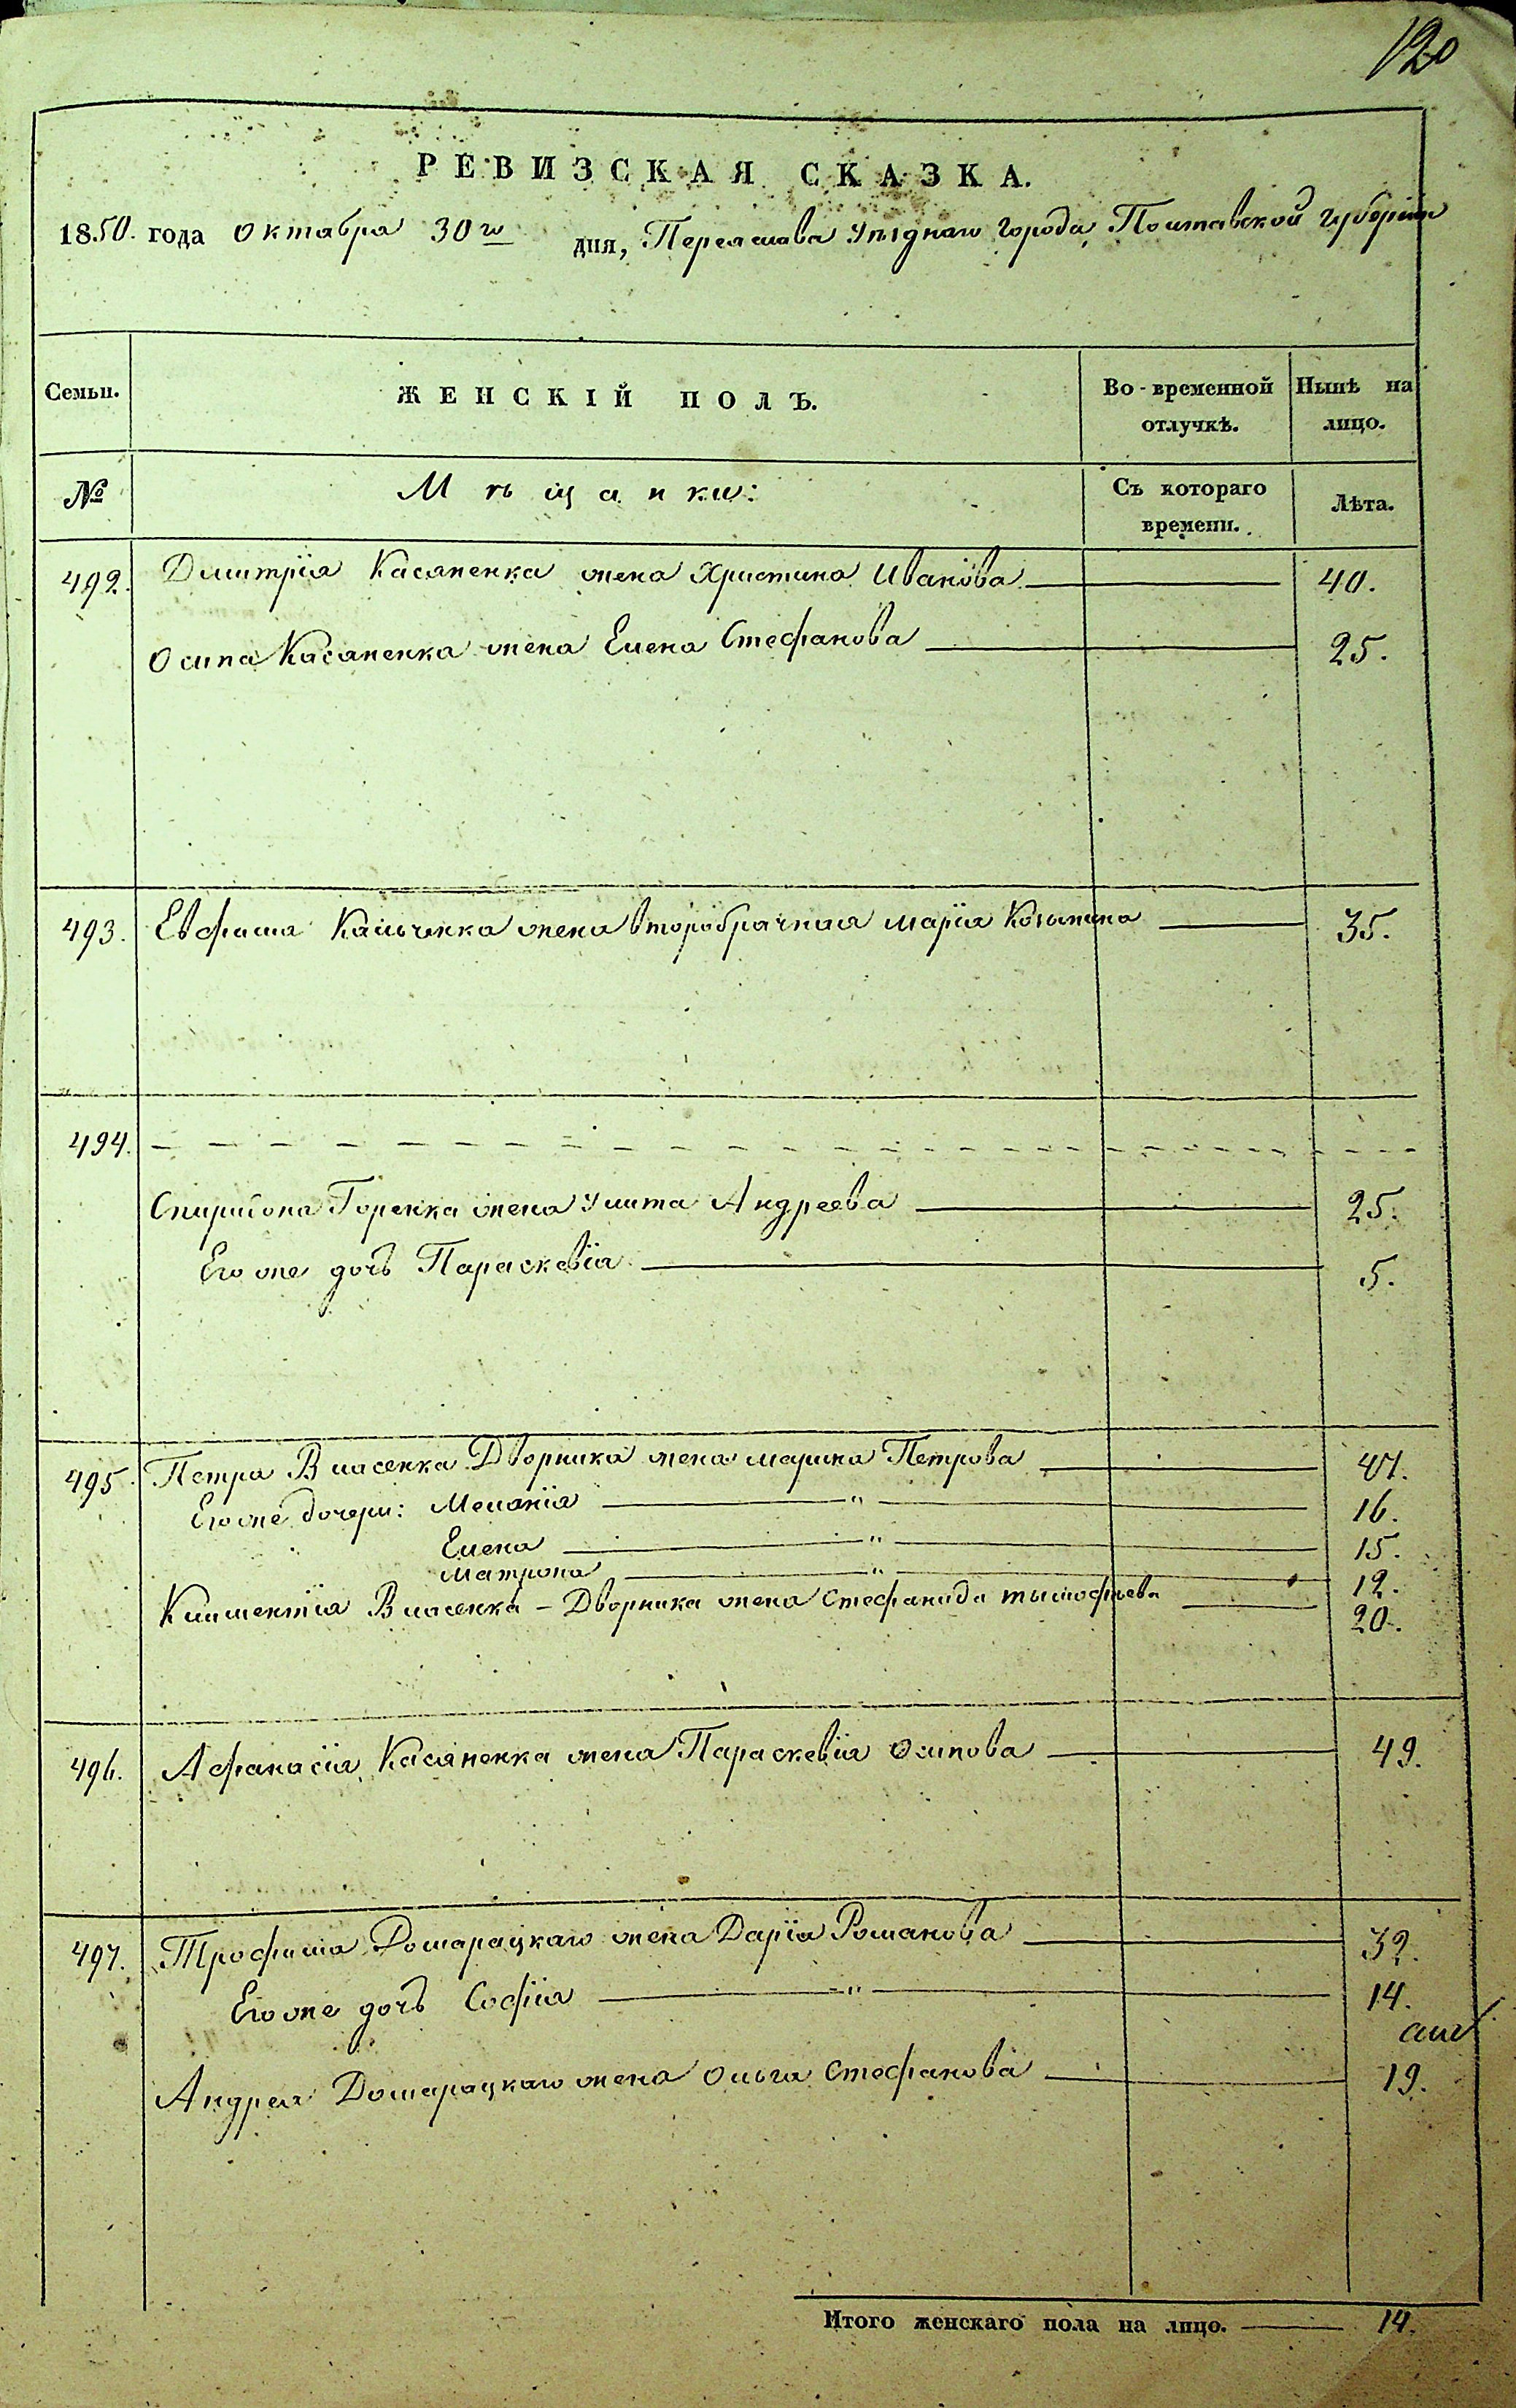 120
РЕВИЗСКАЯ СКАЗКА.
1850. года Октября 30го дня, Переяслава Уѣзднаго города, Полтавской Губерніи
Семьи.
ЖЕНСКІЙ ПОЛЪ.
Во-временной отлучкѣ.
Нынѣ на лицо.
№
Мѣщанки:
Съ котораго времени.
Лѣта.
492. Дмитрія Касяненка жена Христина Иванова 40.
Осипа Касяненка жена Елена Стефанова 25.
493. Евфима Кальченка жена второбрачная Марія Козьмина 35.
494.
Спиридона Горенка жена Улита Андреева 25.
Его же дочь Параскевія 5.
495. Петра Власенка Дворника жена Марина Петрова 47.
Его же дочери: Меланія " 16.
Елена " 15.
Матрона " 12.
Климентія Власенка - Дворника жена Стефанида Тымофѣева 20.
496. Афанасія Касяненка жена Параскевія Осипова 49.
497. Трофима Домарацкаго жена Дарія Романова 32.
Его же дочь Софія " 14.
Андрея Домарацкаго жена Ольга Стефанова 19.
Итого женскаго пола на лицо. 14.